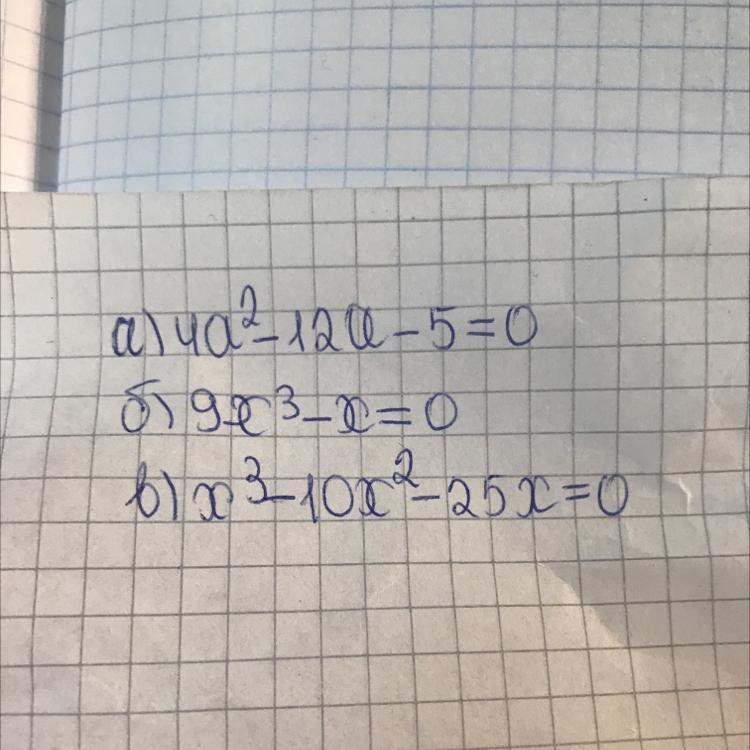 а) 4a²-12a-5=0
б) 9x³-x=0
в) x³-10x²-25x=0